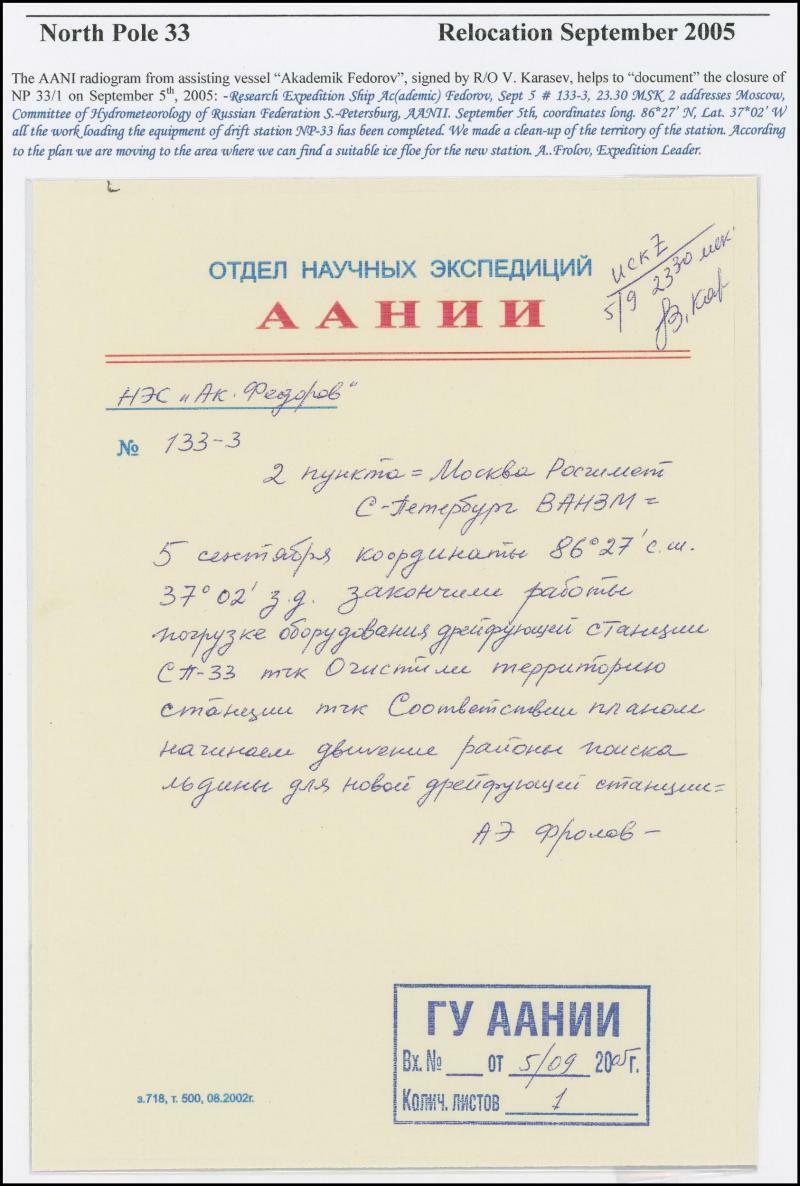 North Pole 33 Relocation September 2005
The AANI radiogram from assisting vessel “Akademik Fedorov”, signed by R/O V. Karasev, helps to “document” the closure of
NP 33/1 on September 5th, 2005: -Research Expedition Ship Ac(ademic) Fedorov, Sept 5 # 133-3, 23.30 MSK 2 addresses Moscow,
Committee of Hydrometeorology of Russian Federation S.-Petersburg, AANII. September 5th, coordinates long. 86*27' N, Lat. 37*02' W
all the work loading the equipment of drift station NP-33 has been completed. We made a clean-up of the territory of the station. According
to the plan we are moving to the area where we can find a suitable ice floe for the new station. A..Frolov, Expedition Leader.
ОТДЕЛ НАУЧНЫХ ЭКСПЕДИЦИЙ
ААНИИ
5/9 2330 мск
В. Кар
НЭС „Ак. Федоров"
№ 133-3
2 пункта = Москва Росгимет
С-Петербург ВАНЗМ =
5 сентября координаты 86°27' с.ш.
37°02' з.д. закончили работы
погрузке оборудования дрейфующей станции
СП-33 тчк Очистили территорию
станции тчк Соответствии планом
начинаем движение районы поиска
льдины для новой дрейфующей станции=
АЭ Фролов –
ГУ ААНИИ
Вх. № ___ от 5/09 2005г.
Колич. листов 1
з.718, т. 500, 08.2002г.